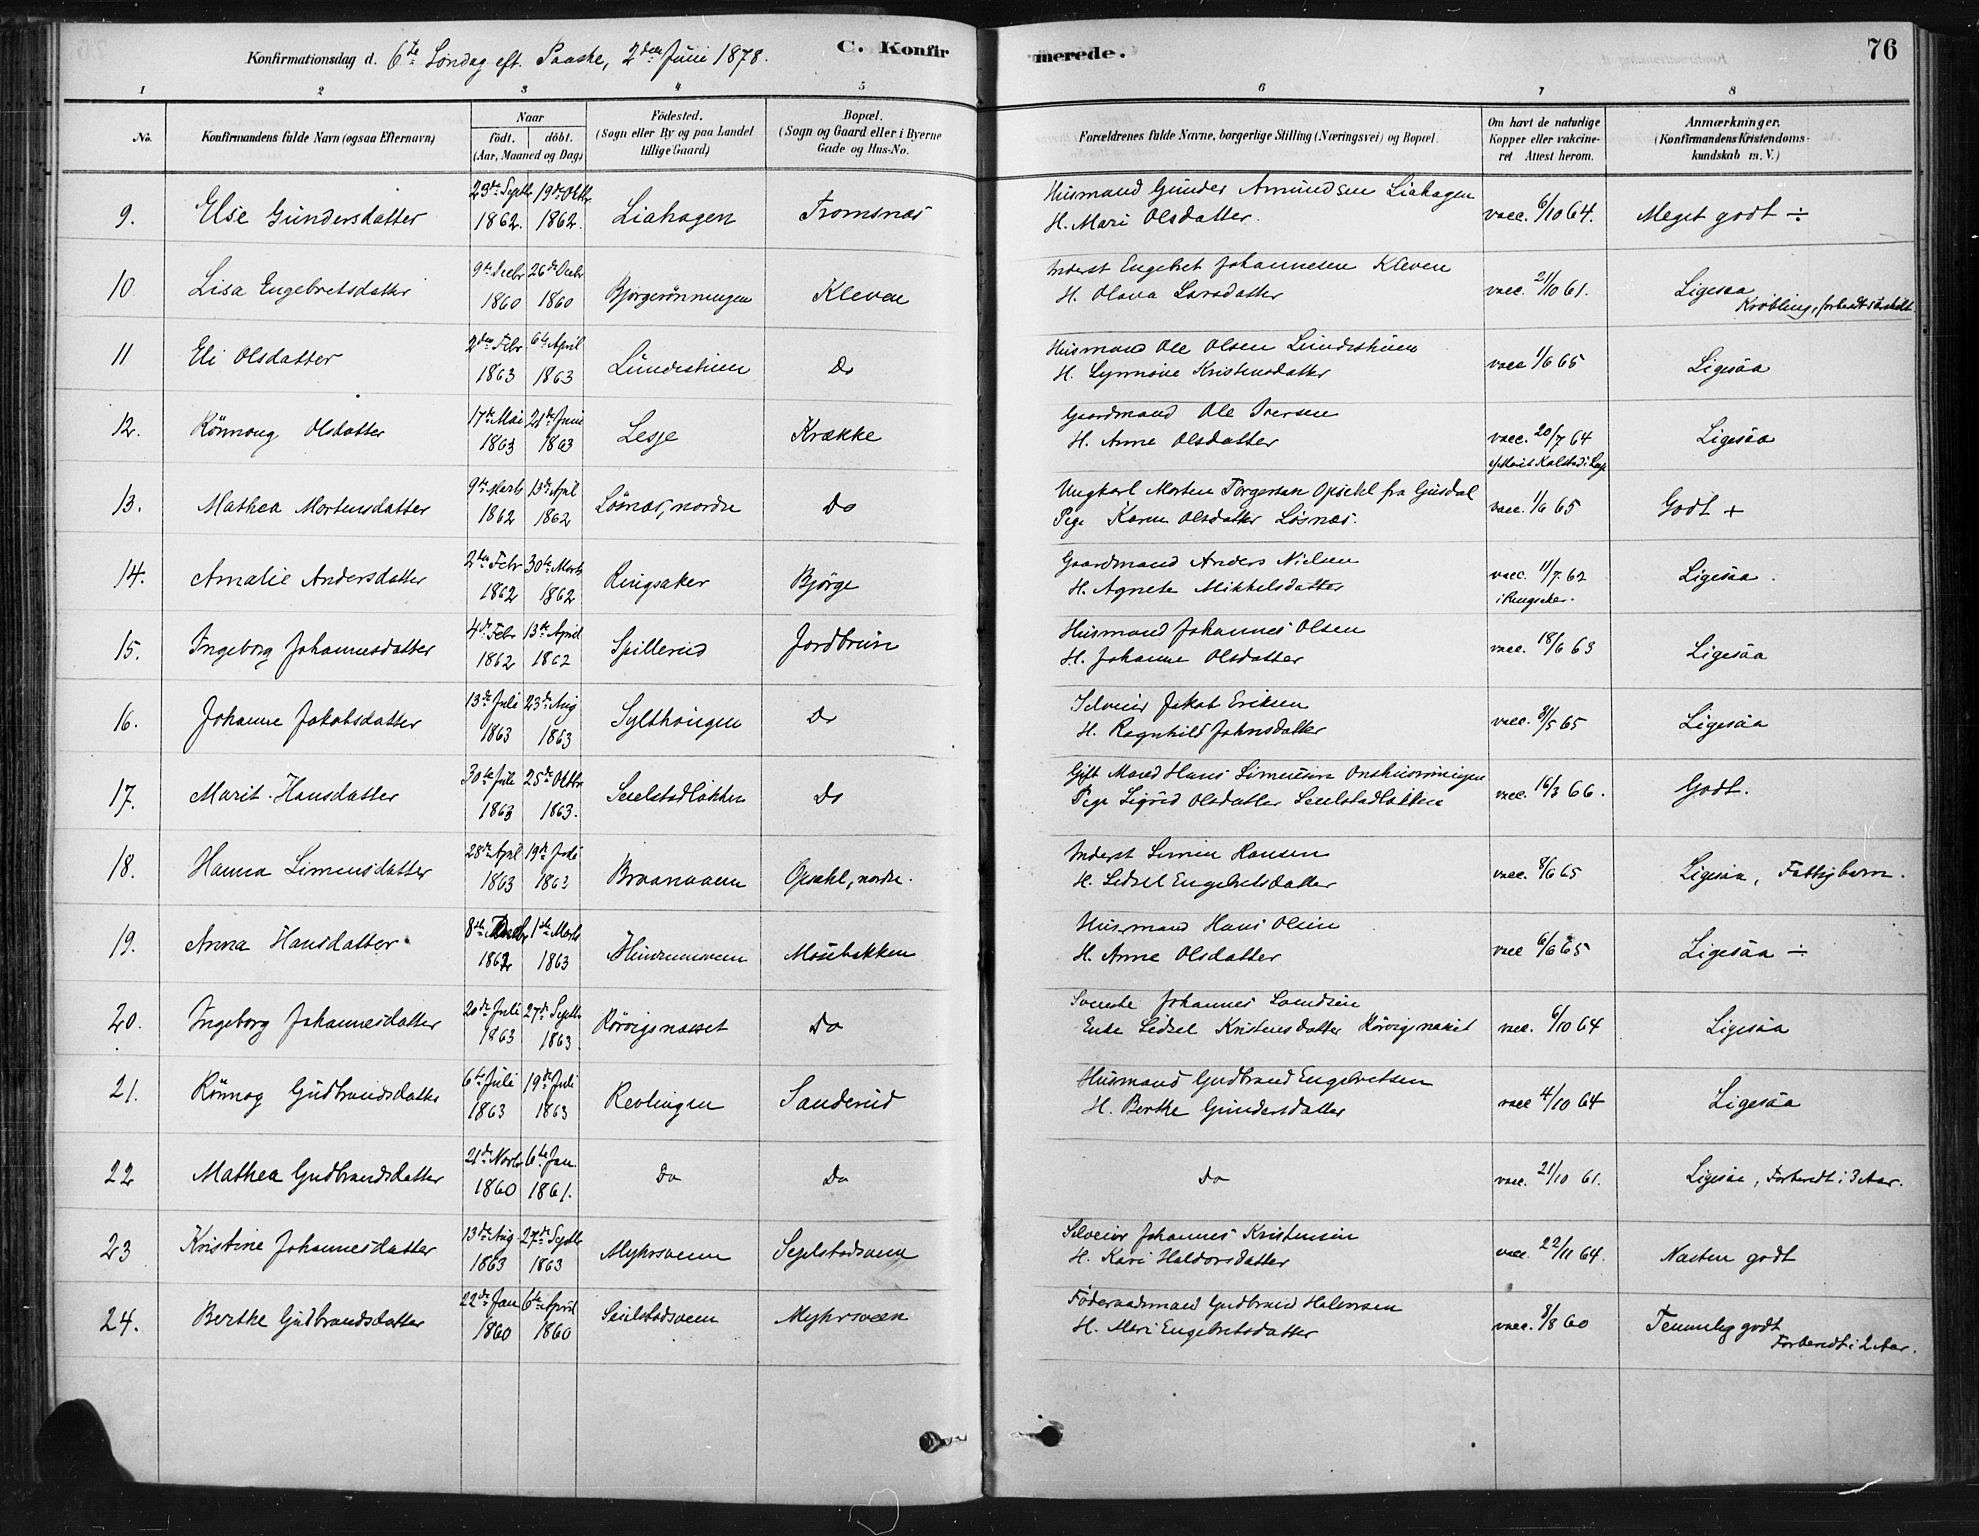 Konfirmationsdag d. 6te Søndag eft. Paaske, 2den Juni 1878.
C. Konfirmerede.
76
1 2 3 4 5 6 7 8
No.
Konfirmandens fulde Navn (ogsaa Efternavn)
Naar
födt. döbt.
(Aar, Maaned og Dag)
Födested.
(Sogn eller By og paa Landet
tillige Gaard)
Bopæl.
(Sogn og Gaard eller i Byerne
Gade og Hus-No.
Forældrenes fulde Navne, borgerlige Stilling (Næringsvei) og Bopæl.
Om havt de naturlige
Kopper eller vakcine-
ret Attest herom.
Anmærkninger.
(Konfirmandens Kristendoms-
kundskab m. V.)
9. Else Gundersdatter 29de Septbr 1862. 19de Oktbr 1862. Liahagen Tromsnæs
Husmand Gunder Amundsen Liahagen
H. Mari Olsdatter. vacc. 6/10 64. Meget godt ÷
10 Lisa Engebretsdatter 9de Decbr 1860 26de Decbr 1860 Bjørgerønningen Kleven
Inderst Engebret Johannesen Kleven
H. Olava Larsdatter vacc. 21/10 61. Ligesaa
Krøbling, forberedt særskilt
11 Eli Olsdatter 2den Febr 1863 6te April 1863 Lundestuen Do
Husmand Ole Olsen Lundestuen
H. Synnøve Kristensdatter vacc 1/6 65 Ligesaa
12. Rönnaug Olsdatter 17de Mai 1863 21de Juni 1863 Lesje Krække
Gaardmand Ole Iversen
H. Anne Olsdatter vacc. 20/7 64 Ligesaa
13. Mathea Mortensdatter 9de Marts 1862 13de April 1862 Løsnæs, nordre Do
Ungkarl Morten Torgersen Opsahl fra Gusdal
Pige Karen Olsdatter Løsnæs. vacc. 1/6 65 Godt +
14. Amalie Andersdatter 2den Febr 1862 30te Marts 1862 Ringsaker Bjørge
Gaardmand Anders Nielsen
H. Agnete Mikkelsdatter vacc. 11/7 62 Ligesaa.
i Ringsaker.
15. Ingeborg Johannesdatter 4de Febr 1862 13de April 1862 Spillerud Jordbrun
Husmand Johannes Olsen
H. Johanne Olsdatter vacc. 18/6 63 Ligesaa
16. Johanne Jakobsdatter 13de Juli 1863 23de Aug 1863 Sylthaugen Do
Selveier Jakob Eriksen
H. Ragnhild Johnsdatter vacc. 8/5 65 Ligesaa
17. Marit Hansdatter 30te Juli 1863 25de Oktbr 1863. Seielstadløkken Do
Gift Mand Hans Simensen
Pige Sigrid Olsdatter Seielstadløkken vacc. 16/3 66. Godt.
18. Hanna Simensdatter 28de April 1863 19de Juli 1863 Braanaaen Opsahl, nordre.
Inderst Simen Hansen
H. Sidsel Engebretsdatter vacc. 8/6 65 Ligesaa, Fattigbarn.
19. Anna Hansdatter 8de Decbr 1862 1ste Marts 1863 Mosebakken
Husmand Hans Olsen
H. Anne Olsdatter vacc 6/6 65 Ligesaa ÷
20. Ingeborg Johannesdatter 20de Juli 1863 27de Septbr 1863 Rörvigsnæsset Do
Svenske Johannes Svendsen
Enke Sidsel Kristensdatter Rörvigsnæsset vacc. 6/10 64 Ligesaa
21. Rönnog Gudbrandsdatter 6te Juli 1863 19de Juli 1863 Revlingen Sanderud
Husmand Gudbrand Engebretsen
H. Berthe Gundersdatter vacc 4/10 64 Ligesaa
22 Mathea Gudbrandsdatter 21de Novbr 1860 6te Jan 1861. Do Do
Do vacc. 21/10 61. Ligesaa, Forberedt i 3 Aar.
23 Kristine Johannesdatter 13de Aug 1863 27de Septbr 1863 Myhrsveen Segelstadsveen
Selveier Johannes Kristensen
H. Kari Haldorsdatter vacc. 22/11 64. Næsten godt
24. Berthe Gudbrandsdatter 22de Jan 1860 6te April 1860 Seielstadsveen Myhrsveen
Föderaadsmand Gudbrand Halvorsen
H. Mari Engebretsdatter vacc. 8/8 60 Temmelig godt
Forberedt i 2 Aar.